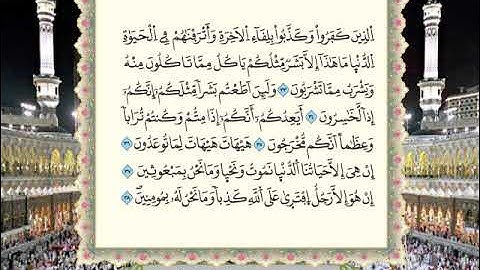 اَ۬لذِينَ كَفَرُواْ وَكَذَّبُواْ بِلِقَآءِ اِ۬لَاخِرَةِ وَأَتْرَفْنَٰهُمْ فِے اِ۬لْحَيَوٰةِ
اِ۬لدُّنْيَا مَا هَٰذَآ إِلَّا بَشَرٞ مِّثْلُكُمْ يَاكُلُ مِمَّا تَاكُلُونَ مِنْهُ
وَيَشْرَبُ مِمَّا تَشْرَبُونَ ٣٣ وَلَئِنَ اَطَعْتُم بَشَراٗ مِّثْلَكُمُۥٓ إِنَّكُمُۥٓ
إِذاٗ لَّخَٰسِرُونَ ٣٤ أَيَعِدُكُمُۥٓ أَنَّكُمُۥٓ إِذَا مِتُّمْ وَكُنتُمْ تُرَاباٗ
وَعِظَٰماً اَنَّكُم مُّخْرَجُونَ ٣٥ هَيْهَاتَ هَيْهَاتَ لِمَا تُوعَدُونَ ٣٦
إِنْ هِيَ إِلَّا حَيَاتُنَا اَ۬لدُّنْيَا نَمُوتُ وَنَحْيَا وَمَا نَحْنُ بِمَبْعُوثِينَ ٣٧
إِنْ هُوَ إِلَّا رَجُلٌ اِ۪فْتَر۪يٰ عَلَى اَ۬للَّهِ كَذِباٗ وَمَا نَحْنُ لَهُۥ بِمُومِنِينَۖ ٣٨